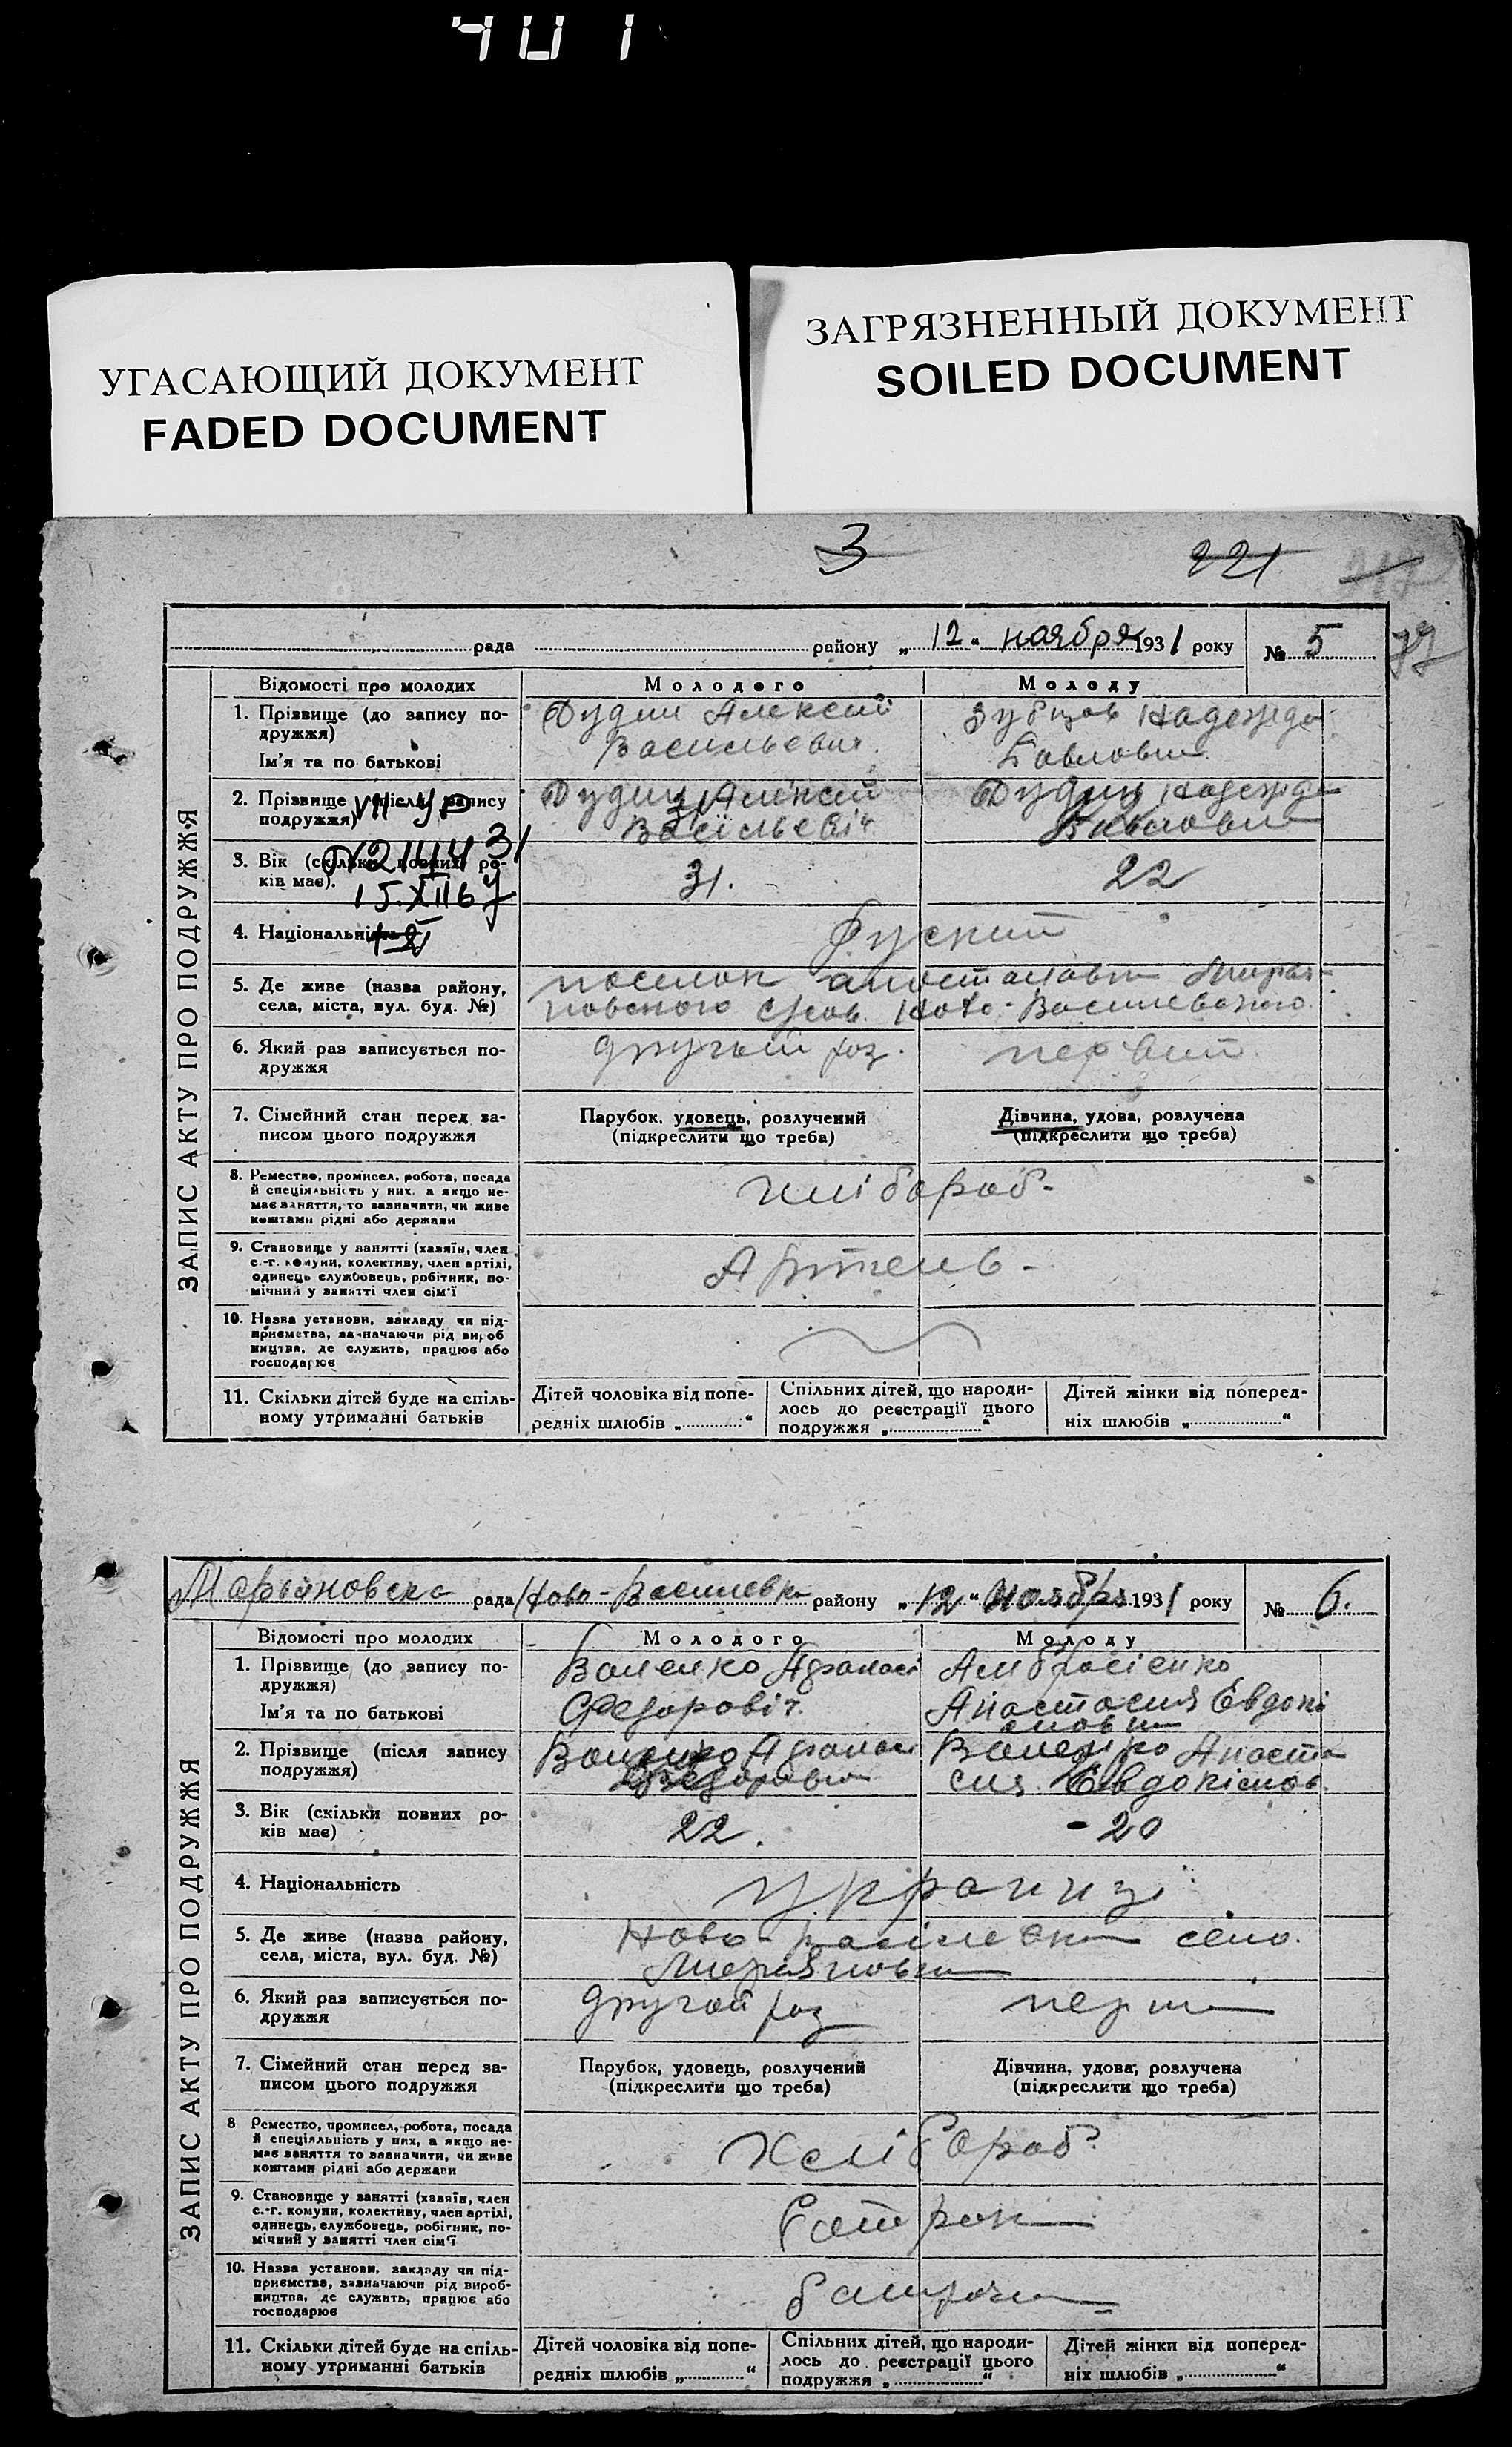 401
УГАСАЮЩИЙ ДОКУМЕНТ
FADED DOCUMENT
ЗАГРЯЗНЕННЫЙ ДОКУМЕНТ
SOILED DOCUMENT
3 221
рада району „12“ ноября 1931 року № 5
77
ЗАПИС АКТУ ПРО ПОДРУЖЖЯ
Відомості про молодих
Молодого
Молоду
1. Прізвище (до запису по-
дружжя)
Ім'я та по батькові
Дудин Алексей
Васильевич.
Зубцов Надежда
Павловна
2. Прізвище (після запису
подружжя)
Дудин Алексей
Васільевіч
Дудин Надежда
Павловна
3. Вік (скільки повних ро-
ків має).
31.
22
15.XII67
4. Національність
Руский
5. Де живе (назва району,
села, міста, вул. буд. №)
поселок
Ново-Василевского
6. Який раз записується по-
дружжя
другой раз.
первий
7. Сімейний стан перед за-
писом цього подружжя
Парубок, удовець, розлучений
(підкреслити що треба)
Дівчина, удова, розлучена
(підкреслити що треба)
8. Ремество, промисел, робота, посада
й спеціяльність у них, а якщо не-
має заняття, то зазначити, чи живе
коштами рідні або держави
хлібороб-
9. Становище у занятті (хазяїн, член
с.-г. комуни, колективу, член артілі,
одинець службовець, робітник, по-
мічний у занятті член сім'ї
Артель-
10. Назва установи, закладу чи під-
приємства, зазначаючи рід вироб
ництва, де служить, працює або
господарює
11. Скільки дітей буде на спіль-
ному утриманні батьків
Дітей чоловіка від попе-
редніх шлюбів „ “
Спільних дітей, що народи-
лось до реєстрації цього
подружжя „ “
Дітей жінки від поперед-
ніх шлюбів „ “
Марьяновска рада Ново-Василевка району „12“ Ноября 1931 року № 6.
ЗАПИС АКТУ ПРО ПОДРУЖЖЯ
Відомості про молодих
Молодого
Молоду
1. Прізвище (до запису по-
дружжя)
Ім'я та по батькові
Федоровіч.
Амбросіенко
Анастасия Евдокі
мовна
2. Прізвище (після запису
подружжя)
Анаста
сия Евдокімов.
3. Вік (скільки повних ро-
ків має)
22.
-20
4. Національність
украинці
5. Де живе (назва району,
села, міста, вул. буд. №)
Ново-Васілевка село.
Марияновка
6. Який раз записується по-
дружжя
другой раз
перша
7. Сімейний стан перед за-
писом цього подружжя
Парубок, удовець, розлучений
(підкреслити що треба)
Дівчина, удова, розлучена
(підкреслити що треба)
8 Ремество, промисел, робота, посада
й спеціяльність у них, а якщо не-
має заняття то зазначити, чи живе
коштами рідні або держави
Хлібороб
9. Становище у занятті (хазяїн, член
с.-г. комуни, колективу, член артілі,
одинець, службовець, робітник, по-
мічний у занятті член сім'ї
Батрак
10. Назва установи, закладу чи під-
приємства, зазначаючи рід вироб-
ництва, де служить, працює або
господарює
11. Скільки дітей буде на спіль-
ному утриманні батьків
Дітей чоловіка від попе-
редніх шлюбів „ “
Спільних дітей, що народи-
лось до реєстрації цього
подружжя „ “
Дітей жінки від поперед-
ніх шлюбів „ “